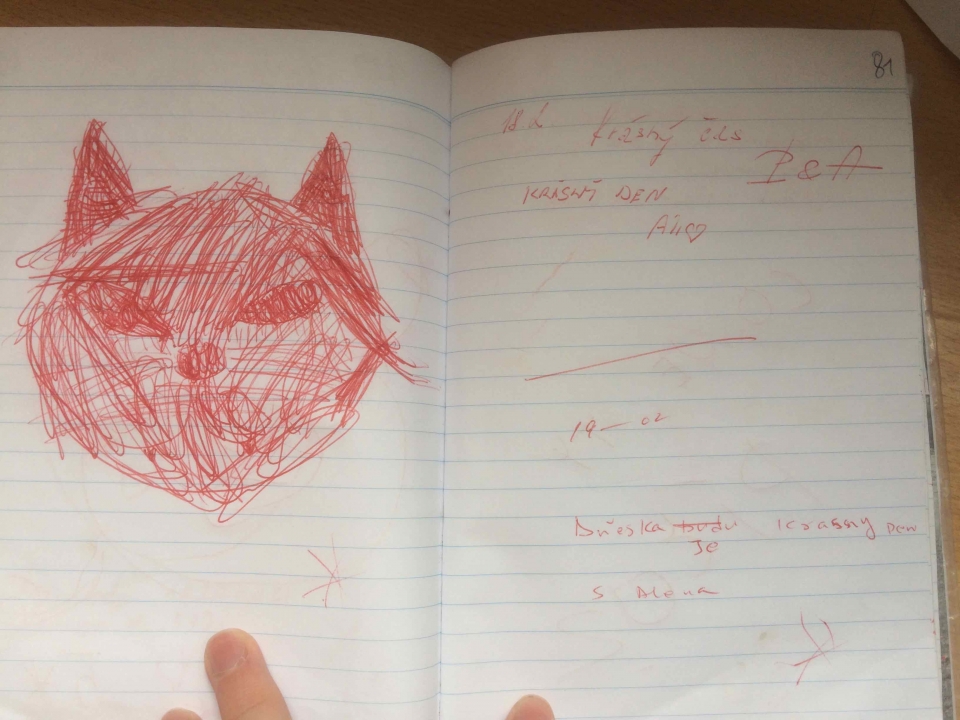 81
18.2 Krásný čas
P & A
KRÁSNÝ DEN
19-02
Dneska budu krasny Den
Je
s Alena